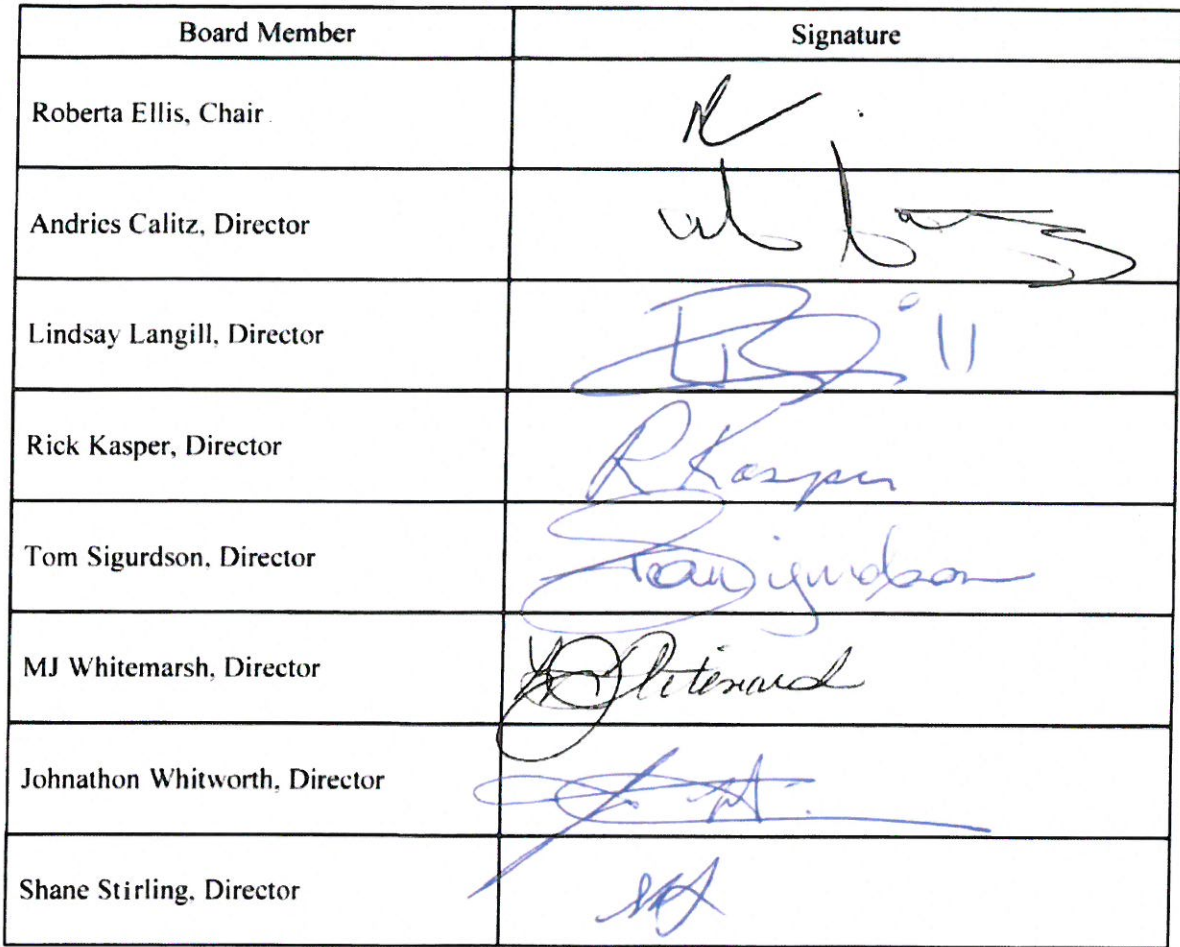 Board Member Signature
Roberta Ellis, Chair
Andries Calitz, Director
Lindsay Langill, Director
Rick Kasper, Director R Kasper
Tom Sigurdson, Director Tom Sigurdson
MJ Whitemarsh, Director
Johnathon Whitworth, Director
Shane Stirling, Director